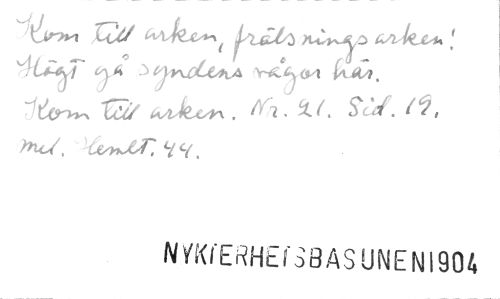 Kom till arken, frälsningsarken!
Högt gå syndens vågor här.
Kom till arken. Nr. 21. Sid. 19.
mel. Hemlt. 44.
NYKTERHETSBASUNEN 1904